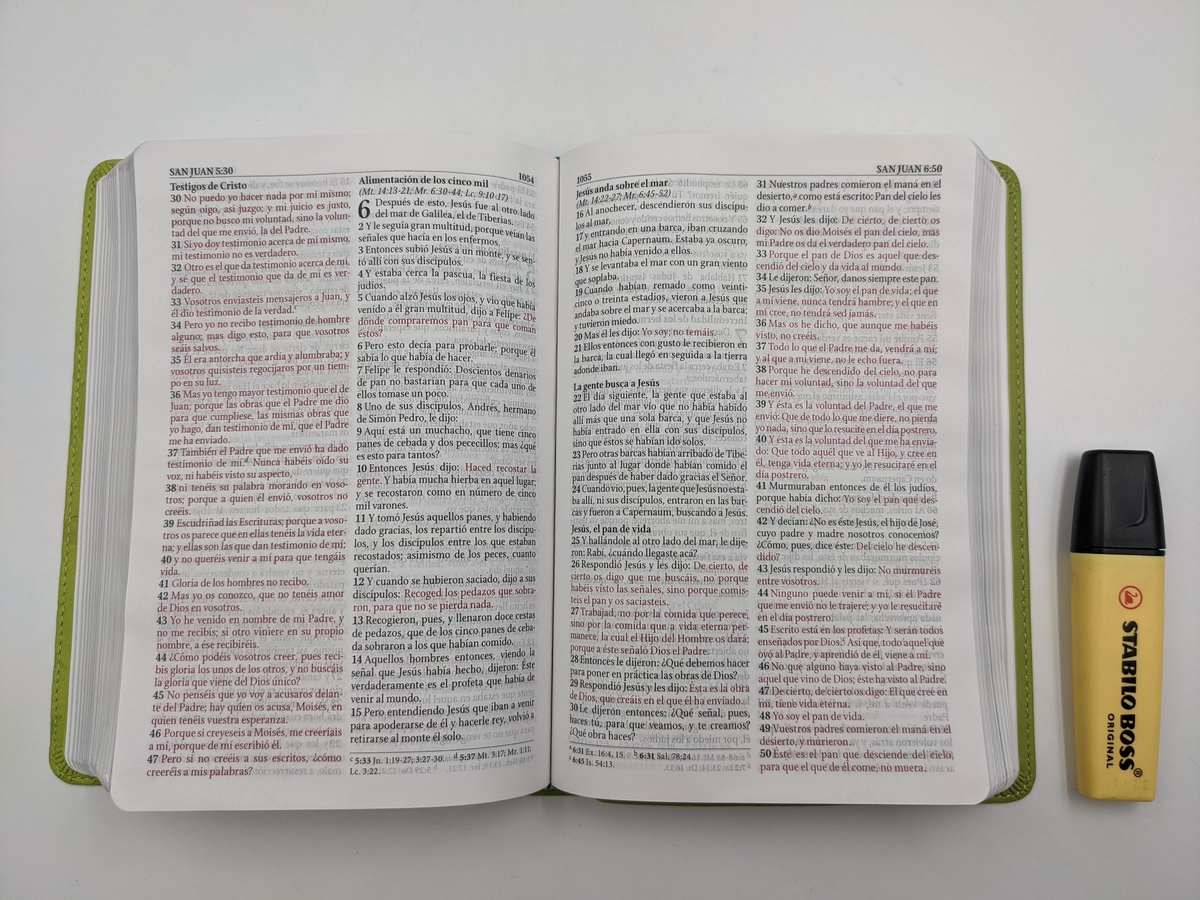 SAN JUAN 5:30
1054
Testigos de Cristo
30 No puedo yo hacer nada por mí mismo;
según oigo, así juzgo; y mi juicio es justo,
porque no busco mi voluntad, sino la volun-
tad del que me envió, la del Padre.
31 Si yo doy testimonio acerca de mí mismo,
mi testimonio no es verdadero.
32 Otro es el que da testimonio acerca de mí,
y sé que el testimonio que da de mí es ver-
dadero.
33 Vosotros enviasteis mensajeros a Juan, y
él dio testimonio de la verdad.c
34 Pero yo no recibo testimonio de hombre
alguno; mas digo esto, para que vosotros
seáis salvos.
35 Él era antorcha que ardía y alumbraba; y
vosotros quisisteis regocijaros por un tiem-
po en su luz.
36 Mas yo tengo mayor testimonio que el de
Juan; porque las obras que el Padre me dio
para que cumpliese, las mismas obras que
yo hago, dan testimonio de mí, que el Padre
me ha enviado.
37 También el Padre que me envió ha dado
testimonio de mí.d Nunca habéis oído su
voz, ni habéis visto su aspecto,
38 ni tenéis su palabra morando en voso-
tros; porque a quien él envió, vosotros no
creéis.
39 Escudriñad las Escrituras; porque a voso-
tros os parece que en ellas tenéis la vida eter-
na; y ellas son las que dan testimonio de mí;
40 y no queréis venir a mí para que tengáis
vida.
41 Gloria de los hombres no recibo.
42 Mas yo os conozco, que no tenéis amor
de Dios en vosotros.
43 Yo he venido en nombre de mi Padre, y
no me recibís; si otro viniere en su propio
nombre, a ése recibiréis.
44 ¿Cómo podéis vosotros creer, pues reci-
bís gloria los unos de los otros, y no buscáis
la gloria que viene del Dios único?
45 No penséis que yo voy a acusaros delan-
te del Padre; hay quien os acusa, Moisés, en
quien tenéis vuestra esperanza.
46 Porque si creyeseis a Moisés, me creeríais
a mí, porque de mí escribió él.
47 Pero si no creéis a sus escritos, ¿cómo
creeréis a mis palabras?
Alimentación de los cinco mil
(Mt. 14:13-21; Mr. 6:30-44; Lc. 9:10-17)
6 Después de esto, Jesús fue al otro lado
del mar de Galilea, el de Tiberias.
2 Y le seguía gran multitud, porque veían las
señales que hacía en los enfermos.
3 Entonces subió Jesús a un monte, y se sen-
tó allí con sus discípulos.
4 Y estaba cerca la pascua, la fiesta de los
judíos.
5 Cuando alzó Jesús los ojos, y vio que había
venido a él gran multitud, dijo a Felipe: ¿De
dónde compraremos pan para que coman
éstos?
6 Pero esto decía para probarle; porque él
sabía lo que había de hacer.
7 Felipe le respondió: Doscientos denarios
de pan no bastarían para que cada uno de
ellos tomase un poco.
8 Uno de sus discípulos, Andrés, hermano
de Simón Pedro, le dijo:
9 Aquí está un muchacho, que tiene cinco
panes de cebada y dos pececillos; mas ¿qué
es esto para tantos?
10 Entonces Jesús dijo: Haced recostar la
gente. Y había mucha hierba en aquel lugar;
y se recostaron como en número de cinco
mil varones.
11 Y tomó Jesús aquellos panes, y habiendo
dado gracias, los repartió entre los discípu-
los, y los discípulos entre los que estaban
recostados; asimismo de los peces, cuanto
querían.
12 Y cuando se hubieron saciado, dijo a sus
discípulos: Recoged los pedazos que sobra-
ron, para que no se pierda nada.
13 Recogieron, pues, y llenaron doce cestas
de pedazos, que de los cinco panes de ceba-
da sobraron a los que habían comido.
14 Aquellos hombres entonces, viendo la
señal que Jesús había hecho, dijeron: Éste
verdaderamente es el profeta que había de
venir al mundo.
15 Pero entendiendo Jesús que iban a venir
para apoderarse de él y hacerle rey, volvió a
retirarse al monte él solo.
c 5:33 Jn. 1:19-27; 3:27-30. d 5:37 Mt. 3:17; Mr. 1:11;
Lc. 3:22.
1055
SAN JUAN 6:50
Jesús anda sobre el mar
(Mt. 14:22-27; Mr. 6:45-52)
16 Al anochecer, descendieron sus discípu-
los al mar,
17 y entrando en una barca, iban cruzando
el mar hacia Capernaum. Estaba ya oscuro,
y Jesús no había venido a ellos.
18 Y se levantaba el mar con un gran viento
que soplaba.
19 Cuando habían remado como veinti-
cinco o treinta estadios, vieron a Jesús que
andaba sobre el mar y se acercaba a la barca;
y tuvieron miedo.
20 Mas él les dijo: Yo soy; no temáis.
21 Ellos entonces con gusto le recibieron en
la barca, la cual llegó en seguida a la tierra
adonde iban.
La gente busca a Jesús
22 El día siguiente, la gente que estaba al
otro lado del mar vio que no había habido
allí más que una sola barca, y que Jesús no
había entrado en ella con sus discípulos,
sino que éstos se habían ido solos.
23 Pero otras barcas habían arribado de Tibe-
rias junto al lugar donde habían comido el
pan después de haber dado gracias el Señor.
24 Cuando vio, pues, la gente que Jesús no esta-
ba allí, ni sus discípulos, entraron en las bar-
cas y fueron a Capernaum, buscando a Jesús.
Jesús, el pan de vida
25 Y hallándole al otro lado del mar, le dije-
ron: Rabí, ¿cuándo llegaste acá?
26 Respondió Jesús y les dijo: De cierto, de
cierto os digo que me buscáis, no porque
habéis visto las señales, sino porque comis-
teis el pan y os saciasteis.
27 Trabajad, no por la comida que perece,
sino por la comida que a vida eterna per-
manece, la cual el Hijo del Hombre os dará;
porque a éste señaló Dios el Padre.
28 Entonces le dijeron: ¿Qué debemos hacer
para poner en práctica las obras de Dios?
29 Respondió Jesús y les dijo: Esta es la obra
de Dios, que creáis en el que él ha enviado.
30 Le dijeron entonces: ¿Qué señal, pues,
haces tú, para que veamos, y te creamos?
¿Qué obra haces?
a 6:31 Ex. 16:4, 15. b 6:31 Sal. 78:24.
c 6:45 Is. 54:13.
31 Nuestros padres comieron el maná en el
desierto,a como está escrito: Pan del cielo les
dio a comer.b
32 Y Jesús les dijo: De cierto, de cierto os
digo: No os dio Moisés el pan del cielo, mas
mi Padre os da el verdadero pan del cielo.
33 Porque el pan de Dios es aquel que des-
cendió del cielo y da vida al mundo.
34 Le dijeron: Señor, danos siempre este pan.
35 Jesús les dijo: Yo soy el pan de vida; el que
a mí viene, nunca tendrá hambre; y el que en
mí cree, no tendrá sed jamás.
36 Mas os he dicho, que aunque me habéis
visto, no creéis.
37 Todo lo que el Padre me da, vendrá a mí;
y al que a mí viene, no le echo fuera.
38 Porque he descendido del cielo, no para
hacer mi voluntad, sino la voluntad del que
me envió.
39 Y ésta es la voluntad del Padre, el que me
envió: Que de todo lo que me diere, no pierda
yo nada, sino que lo resucite en el día postrero.
40 Y ésta es la voluntad del que me ha envia-
do: Que todo aquél que ve al Hijo, y cree en
él, tenga vida eterna; y yo le resucitaré en el
día postrero.
41 Murmuraban entonces de él los judíos,
porque había dicho: Yo soy el pan que des-
cendió del cielo.
42 Y decían: ¿No es éste Jesús, el hijo de José,
cuyo padre y madre nosotros conocemos?
¿Cómo, pues, dice éste: Del cielo he descen-
dido?
43 Jesús respondió y les dijo: No murmuréis
entre vosotros.
44 Ninguno puede venir a mí, si el Padre
que me envió no le trajere; y yo le resucitaré
en el día postrero.
45 Escrito está en los profetas: Y serán todos
enseñados por Dios.c Así que, todo aquel que
oyó al Padre, y aprendió de él, viene a mí.
46 No que alguno haya visto al Padre, sino
aquel que vino de Dios; éste ha visto al Padre.
47 De cierto, de cierto os digo: El que cree en
mí, tiene vida eterna.
48 Yo soy el pan de vida.
49 Vuestros padres comieron el maná en el
desierto, y murieron.
50 Éste es el pan que desciende del cielo,
para que el que de él come, no muera.
STABILO BOSS®
ORIGINAL